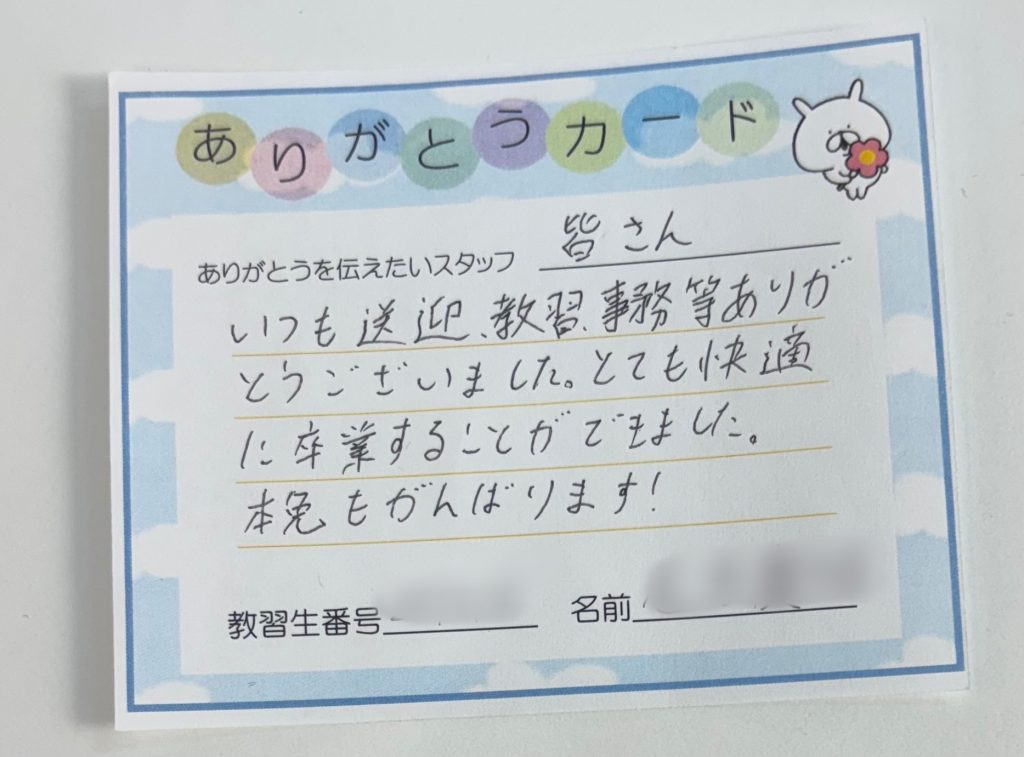 ありがとうカード
ありがとうを伝えたいスタッフ 皆さん
いつも送迎、教習、事務等ありが
とうございました。とても快適
に卒業することができました。
本免もがんばります!
教習生番号 名前